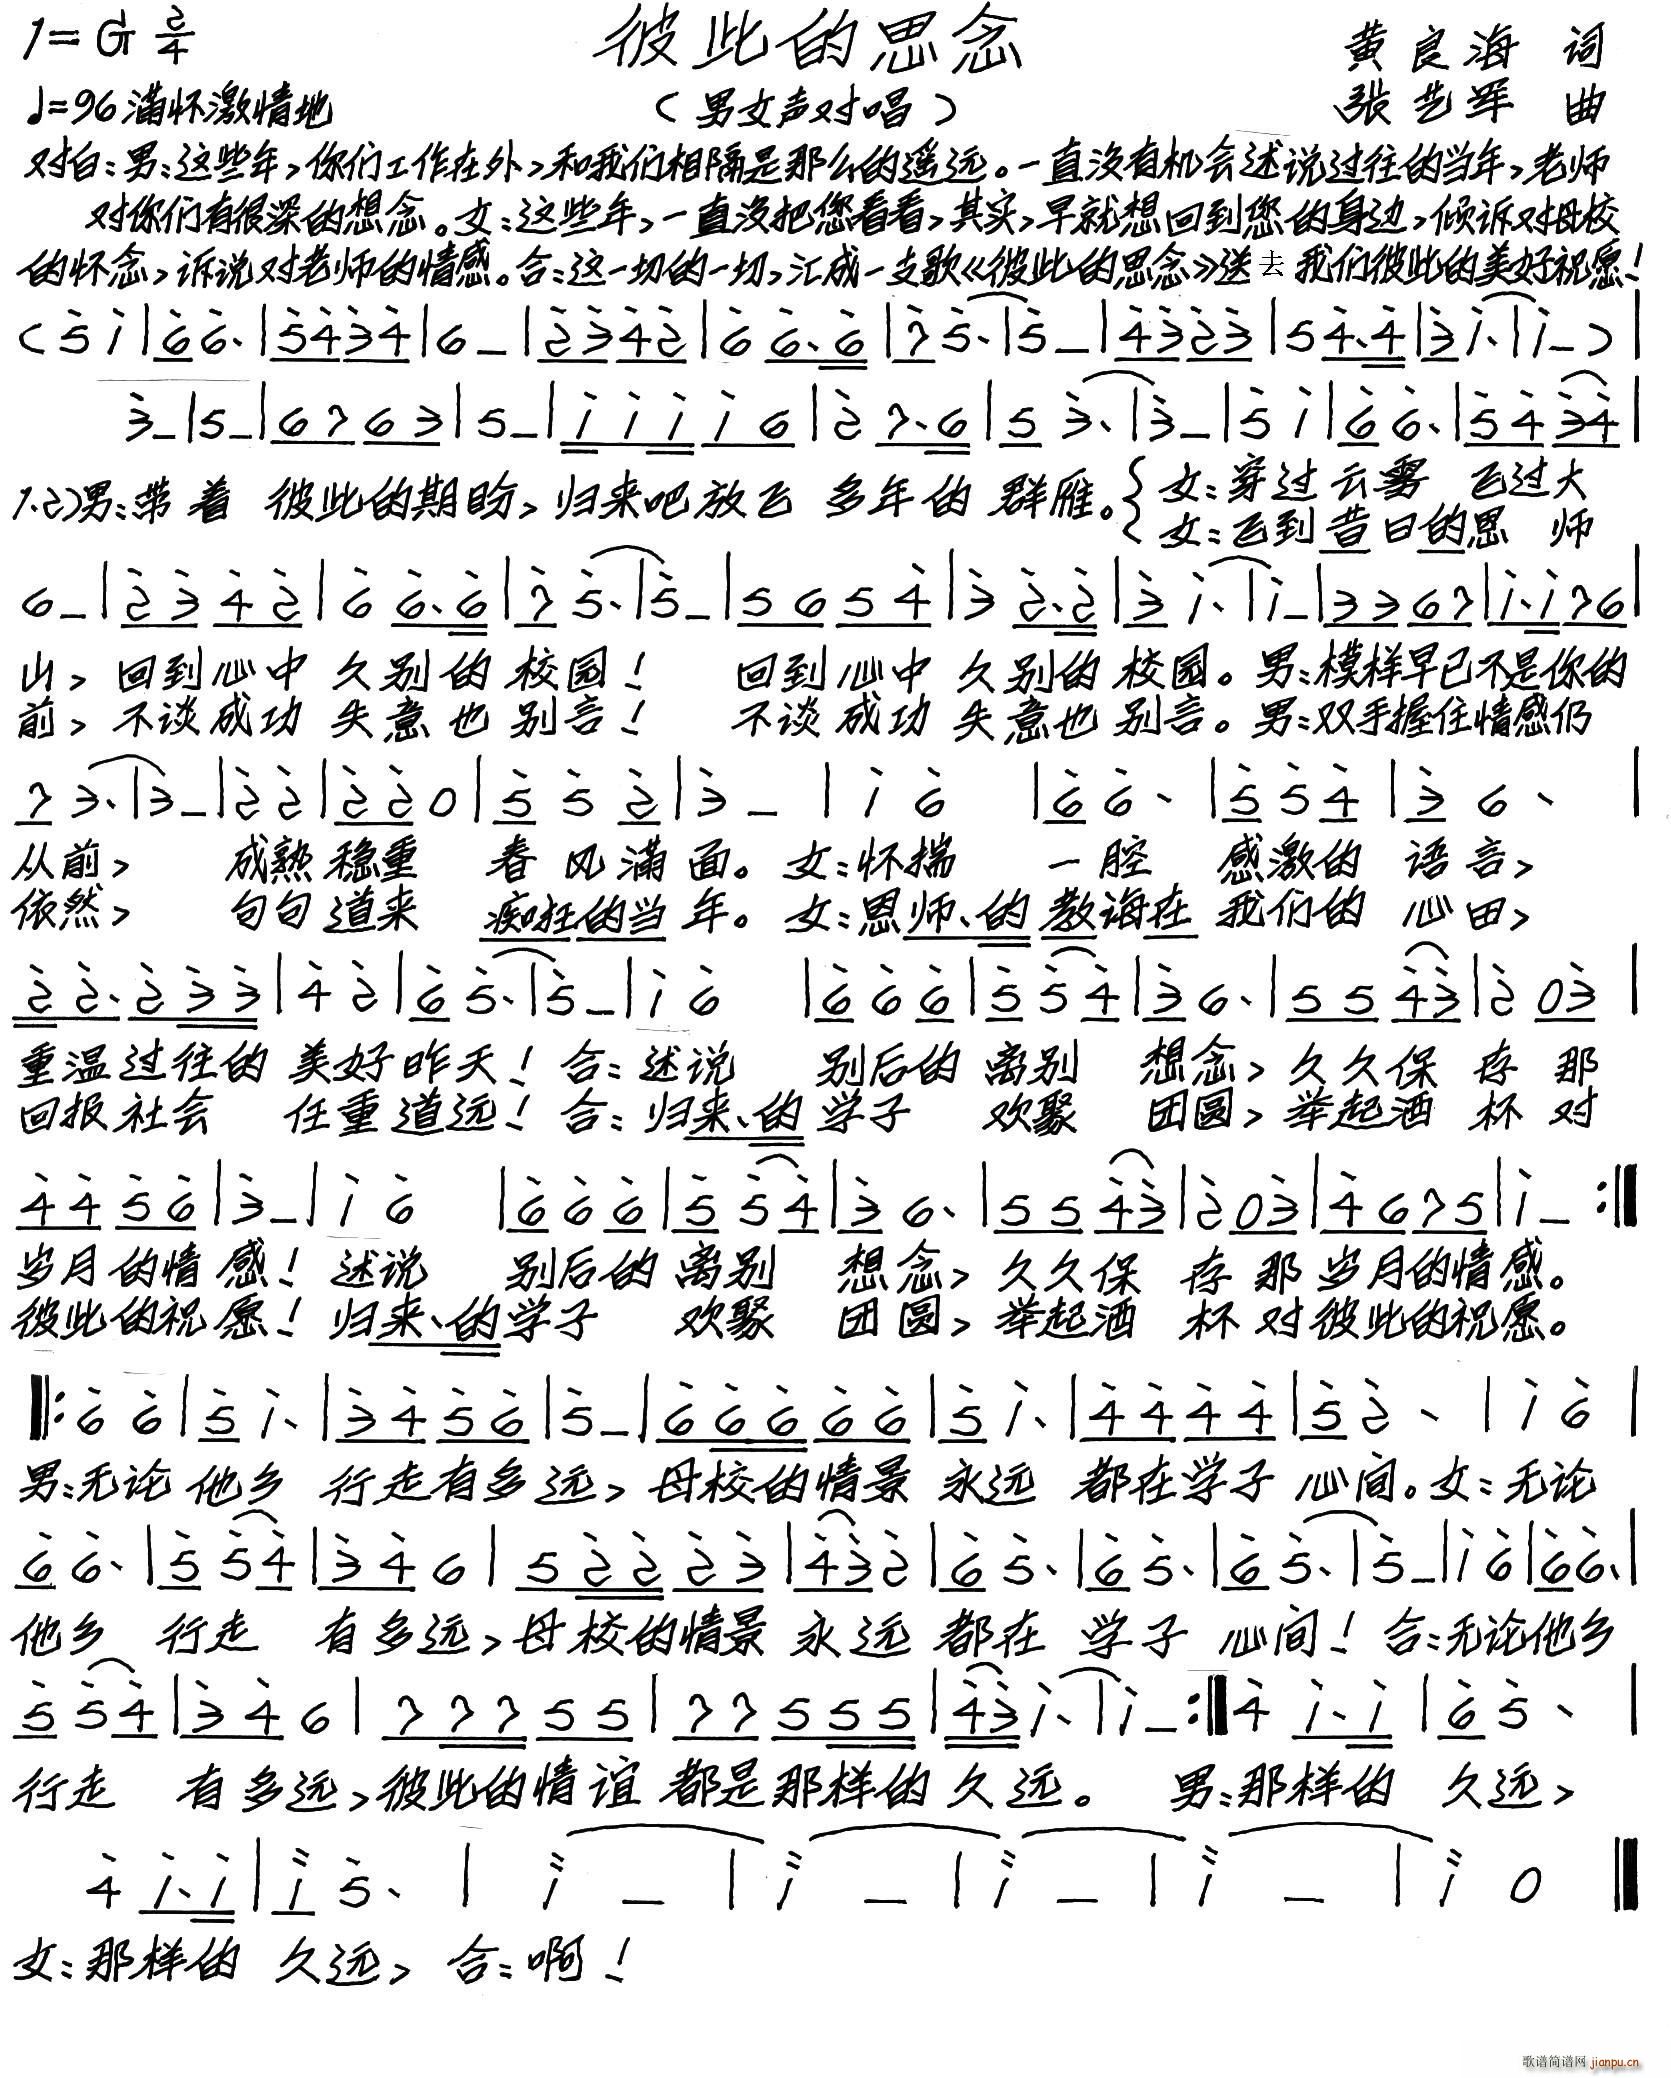 1=G 2/4 彼此的思念 黄良海 词
♩=96 满怀激情地 (男女声对唱) 张艺军 曲
对白:男:这些年,你们工作在外,和我们相隔是那么的遥远。一直没有机会述说过往的当年,老师
对你们有很深的想念。女:这些年,一直没把您看看,其实,早就想回到您的身边,倾诉对母校
的怀念,诉说对老师的情感。合:这一切的一切,汇成一支歌《彼此的思念》送去 我们彼此的美好祝愿!
(5 i|6 6.|5434|6 -|2342|6 6.6|7 5.|5 -|4323|5 4.4|3 i.|i -)|
3 -|5 -|6763|5 -|i i i i 6|2 7.6|5 3.|3 -|5 i|6 6.|5 4 34|
1.2)男:带着 彼此的期盼,归来吧放飞 多年的 群雁。{女:穿过云雾 飞过大
女:飞到昔日的恩 师
6 -|2 3 4 2|6 6.6|7 5.|5 -|5 6 5 4|3 2.2|3 i.|i -|3367|i.i76|
山,回到心中 久别的 校园! 回到心中 久别的 校园。男:模样早已不是你的
前,不谈成功 失意也 别言! 不谈成功 失意也 别言。男:双手握住情感仍
7 3.|3 -|2 2|2 2 0|5 5 2|3 -|i 6|6 6.|5 5 4|3 6.|
从前, 成熟 稳重 春风满面。女:怀揣 一腔 感激的 语言,
依然, 句句道来 痴狂的当年。女:恩师、的教诲在 我们的 心田,
2 2.2 3 3|4 2|6 5.|5 -|i 6|6 6 6|5 5 4|3 6.|5 5 43|2 03|
重温过往的 美好昨天!合:述说 别后的 离别 想念,久久保 存 那
回报社会 任重道远!合:归来、的学子 欢聚 团圆,举起酒 杯 对
4 4 5 6|3 -|i 6|6 6 6|5 5 4|3 6.|5 5 43|2 03|4675|i -:‖
岁月的情感!述说 别后的 离别 想念,久久保 存 那 岁月的情感。
彼此的祝愿!归来、的学子 欢聚 团圆,举起酒 杯 对彼此的祝愿。
‖:6 6|5 i.|3 4 5 6|5 -|6 6 6 6 6|5 i.|4 4 4 4|5 2.|i 6|
男:无论 他乡 行走有多远,母校的情景 永远 都在学子 心间。女:无论
6 6.|5 5 4|3 4 6|5 2 2 2 3|43 2|6 5.|6 5.|6 5.|5 -|i 6|6 6.|
他乡 行走 有多远,母校的情景 永远 都在 学子 心间!合:无论他乡
5 5 4|3 4 6|7 7 7 5 5|7 7 5 5 5|43 i.|i -:‖4 i.i|6 5.|
行走 有多远,彼此的情谊 都是那样的久远。 男:那样的 久远,
4 i.i|i 5.|i -|i -|i -|i -|i 0‖
女:那样的 久远, 合:啊!
歌谱简谱网 jianpu.cn